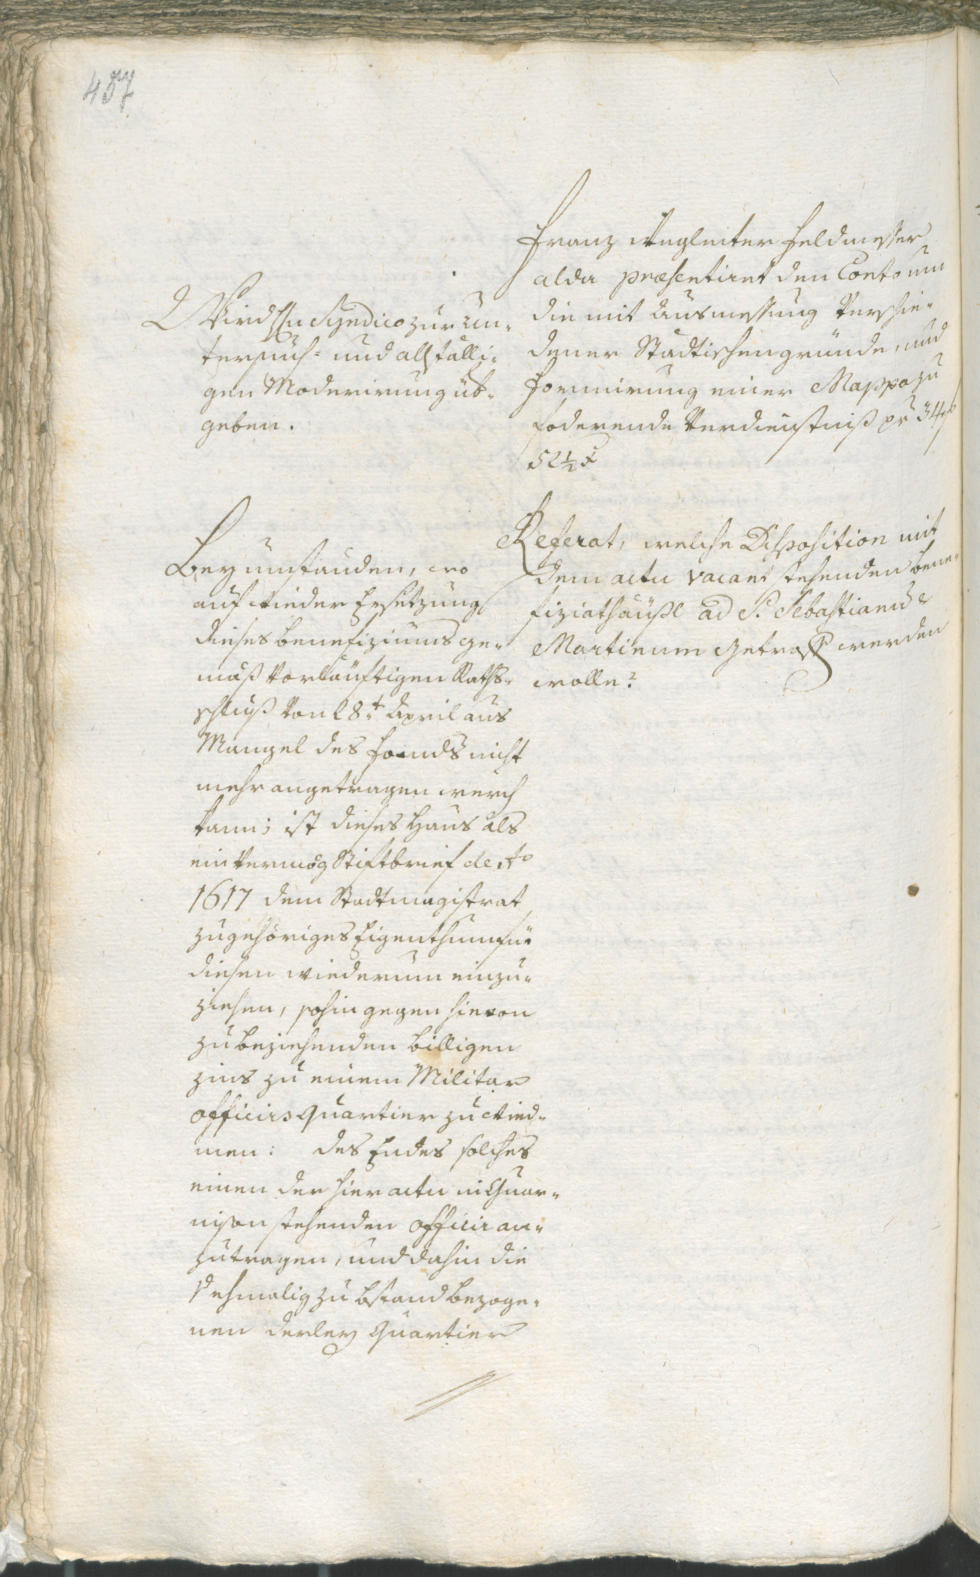 457
Franz Wegleiter Feldmesser
alda præsentiret den Conto um
die mit Ausmessung verschie-
dener Stadtischen gründe, und
Formirung einer Mappa zu
foderende Verdienstniß pr 34 f
52½ x
Wird H Syndico zur Un-
tersuch- und allfälli-
gen Moderirung üb-
geben.
Referat, welche Disposition mit
dem actu vacant stehenden bene-
fiziathäußl ad S. Sebastianum &
Martinum getroffen werden
wolle?
Bey umständen, wo
auf wieder Ersetzung
dieses benefiziums ge-
mäß vorläuftigen Raths-
schluß von 28t April aus
Mangel des Fonds nicht
mehr angetragen werden
kann; ist dieses Haus als
ein vermög Stiftbrief de Ao
1617 dem Stadtmagistrat
zugehöriges Eigenthum für
diesen wiederum einzu-
ziehen, sohin gegen hievon
zu beziehenden billigen
zins zu einem Militar
officirs Quartier zu wied-
men: des Endes solches
einen der hier actu in Guar-
nison stehenden officir an-
zutragen, und dahin die
ehmalig zu bstand bezoge-
nen derley Quartier